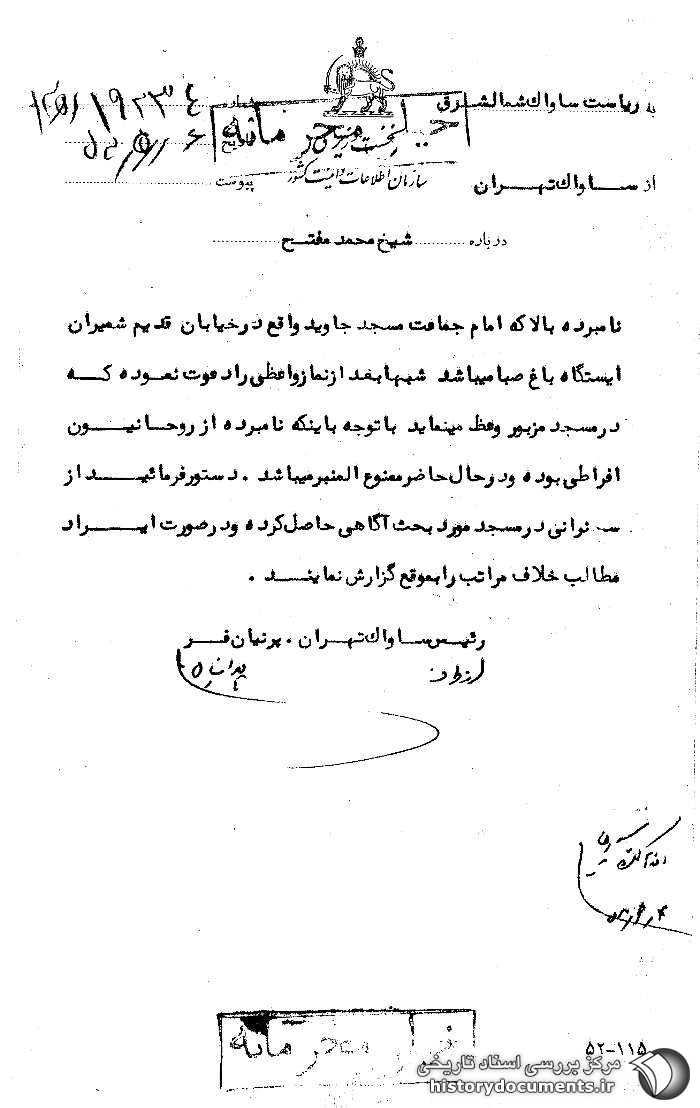 به ریاست ساواک شمالشرق
شماره
خیلی محرمانه
نخست وزیری
تاریخ
از ساواک تهران
سازمان اطلاعات و امنیت کشور
پیوست
درباره شیخ محمد مفتح
نامبرده بالا که امام جماعت مسجد جاوید واقع در خیابان قدیم شمیران
ایستگاه باغ صبا میباشد شبها بعد از نماز واعظی را دعوت نموده که
در مسجد مزبور وعظ مینماید با توجه باینکه نامبرده از روحانیون
افراطی بوده و در حال حاضر ممنوع المنبر میباشد . دستور فرمائید از
سخنرانی در مسجد مورد بحث آگاهی حاصل کرده و در صورت ایراد
مطالب خلاف مراتب را بموقع گزارش نمایند .
رئیس ساواک تهران . پرنیان فر
از طرف
خیلی محرمانه
۵۲-۱۱۵
مرکز بررسی اسناد تاریخی
historydocuments.ir